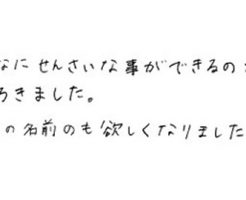 なに せんさいな事ができるの
ろきました。
の名前のも欲しくなりました